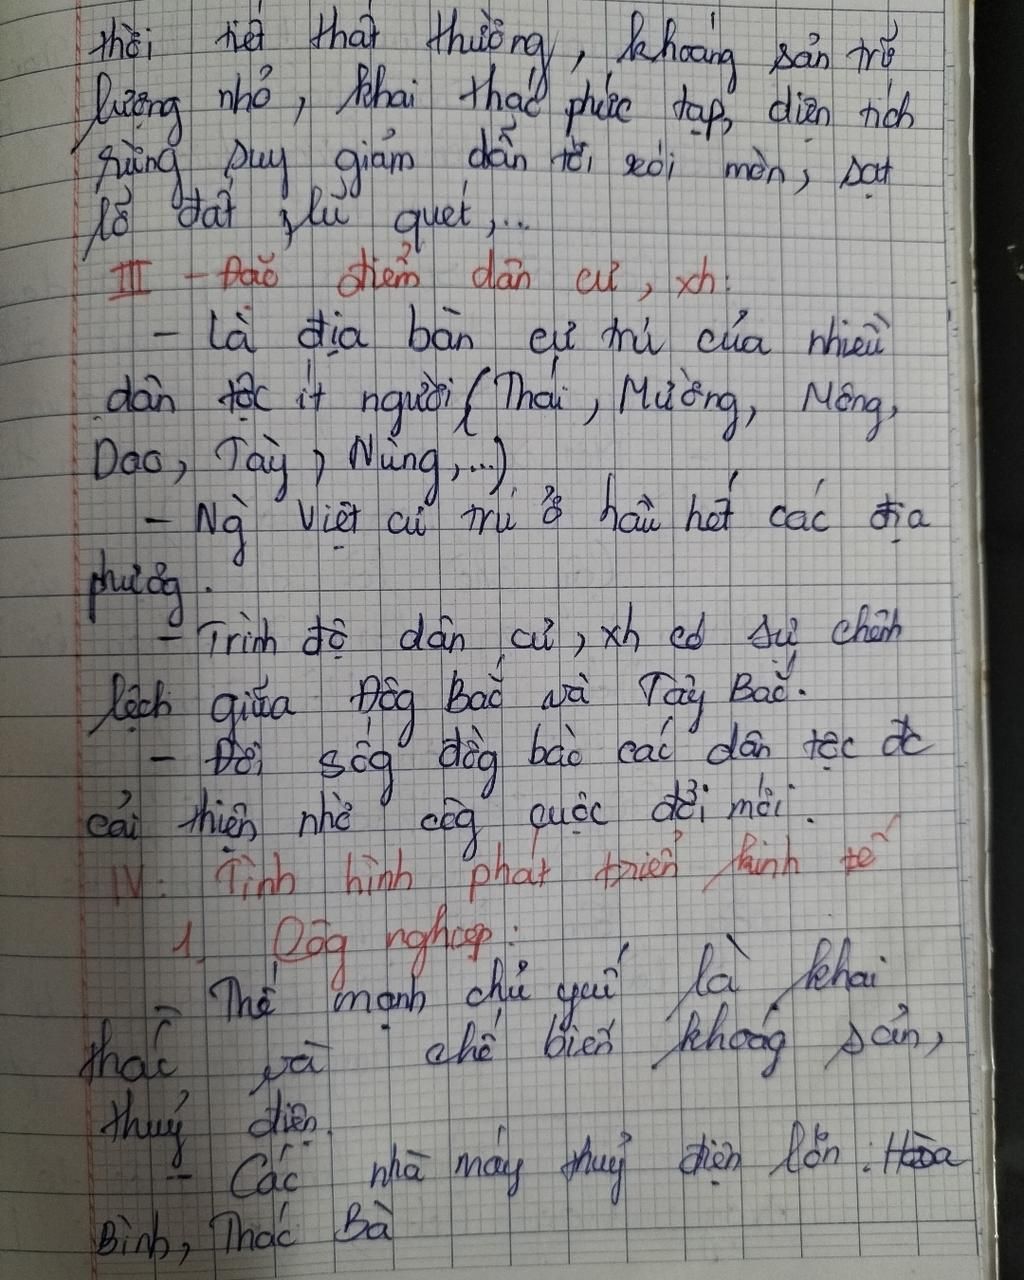 thời tiết thất thường, khoáng sản trữ
lượng nhỏ, khai thác phức tạp, diện tích
rừng suy giảm dẫn tới xói mòn, sạt
lở đất, lũ quét,...
III - Đặc điểm dân cư, xh:
- Là địa bàn cư trú của nhiều
dân tộc ít người (Thái, Mường, Mông,
Dao, Tày, Nùng,...)
- Ng Việt cư trú ở hầu hết các địa
phươg.
- Trình độ dân cư, xh có sự chênh
lệch giữa Đôg Bắc và Tây Bắc.
- Đời sốg đồg bào các dân tộc đc
cải thiện nhờ côg cuộc đổi mới.
IV: Tình hình phát triển kinh tế
1. Côg nghiệp:
- Thế mạnh chủ yếu là khai
thác và chế biến khoág sản,
thuỷ điện.
- Các nhà máy thuỷ điện lớn: Hòa
Bình, Thác Bà